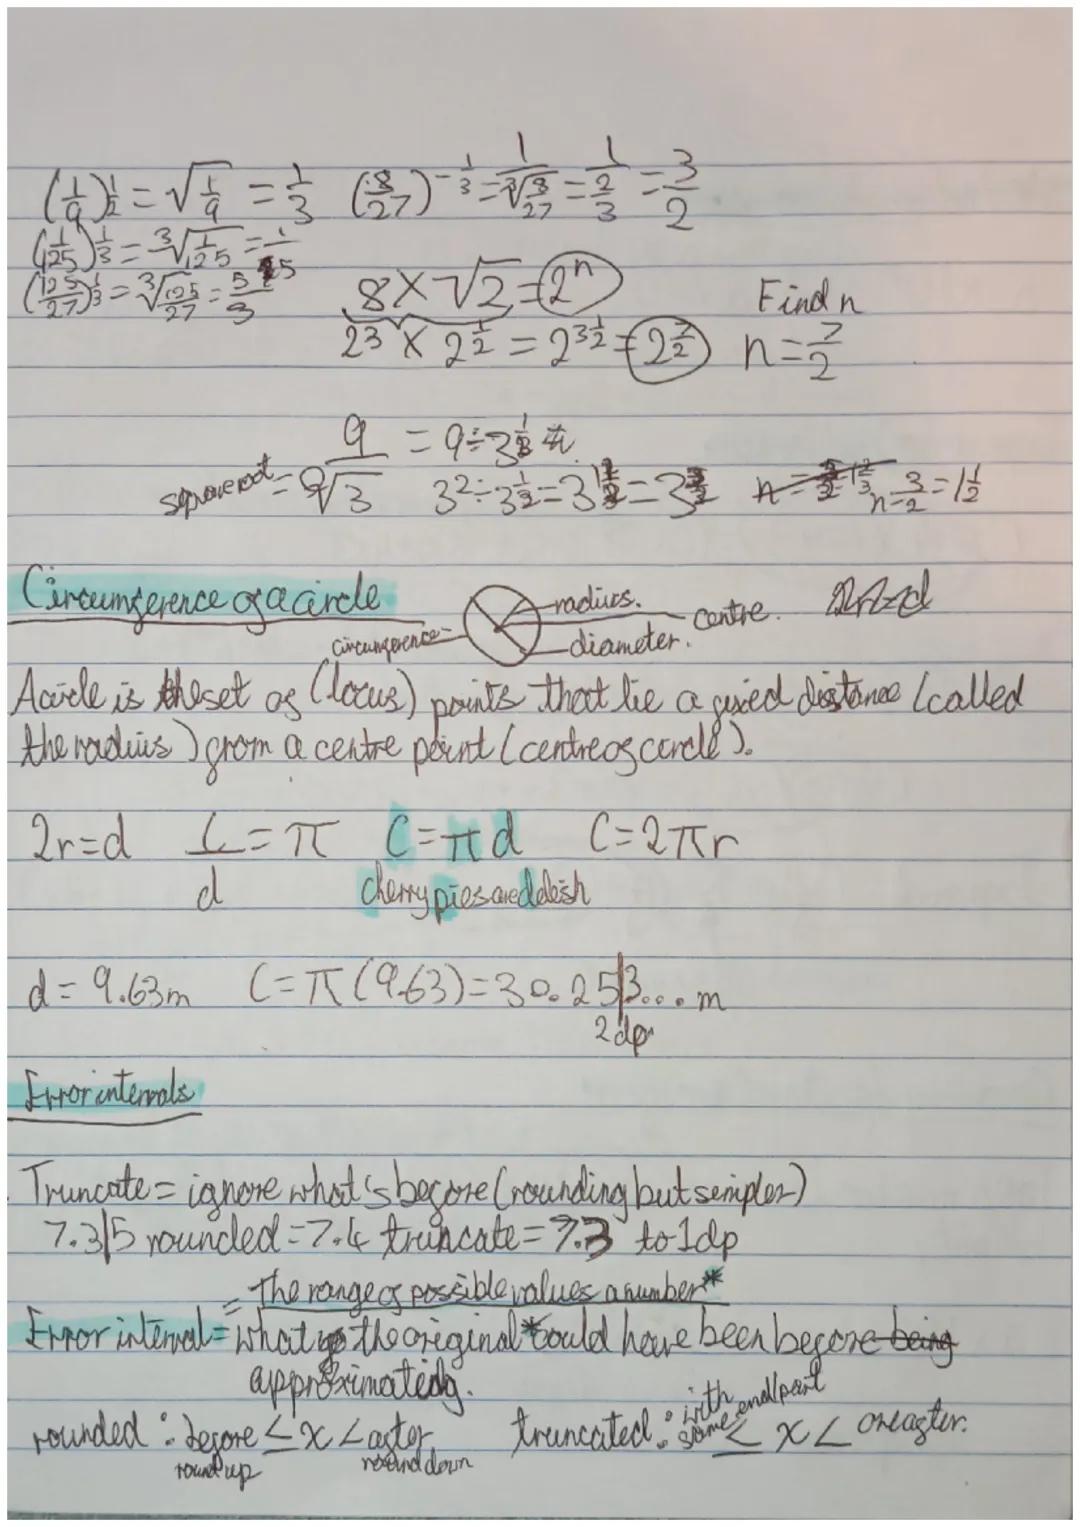 (1/9)^1/2 = √1/9 = 1/3 (8/27)^-1/3 = 1/∛8/27 = 1/2/3 = 3/2
(1/125)^1/3 = ∛1/125 = 1/5
(125/27)^1/3 = ∛125/27 = 5/3
8 × √2 = 2^n Find n
2^3 × 2^1/2 = 2^3 1/2 = 2^7/2 n = 7/2
9/²√3 = 9 ÷ 3^1/2
square root =
3^2 ÷ 3^1/2 = 3^1 1/2 = 3^3/2 n = 3/2 = 1 1/2
Circumference of a circle
radius.
centre.
circumference
diameter.
A circle is the set of (locus) points that lie a fixed distance (called
the radius) from a centre point (centre of circle).
2r=d C/d = π C=πd C=2πr
Cherry pies are delish
d = 9.63m C=π(9.63)=30.25|3... m
2dp
Error intervals
Truncate = ignore what's before (rounding but simpler)
7.3|5 rounded = 7.4 truncate = 7.3 to 1dp
= The range of possible values a number*
Error interval = what the original *could have been before being
approximated.
rounded : before ≤ x < after truncated : same ≤ x < one after.
round up round down with end part